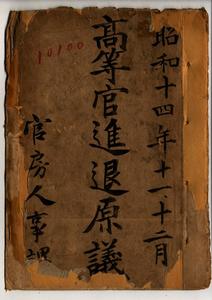 昭和十四年十一十二月
高等官進退原議
官房人事課
10100